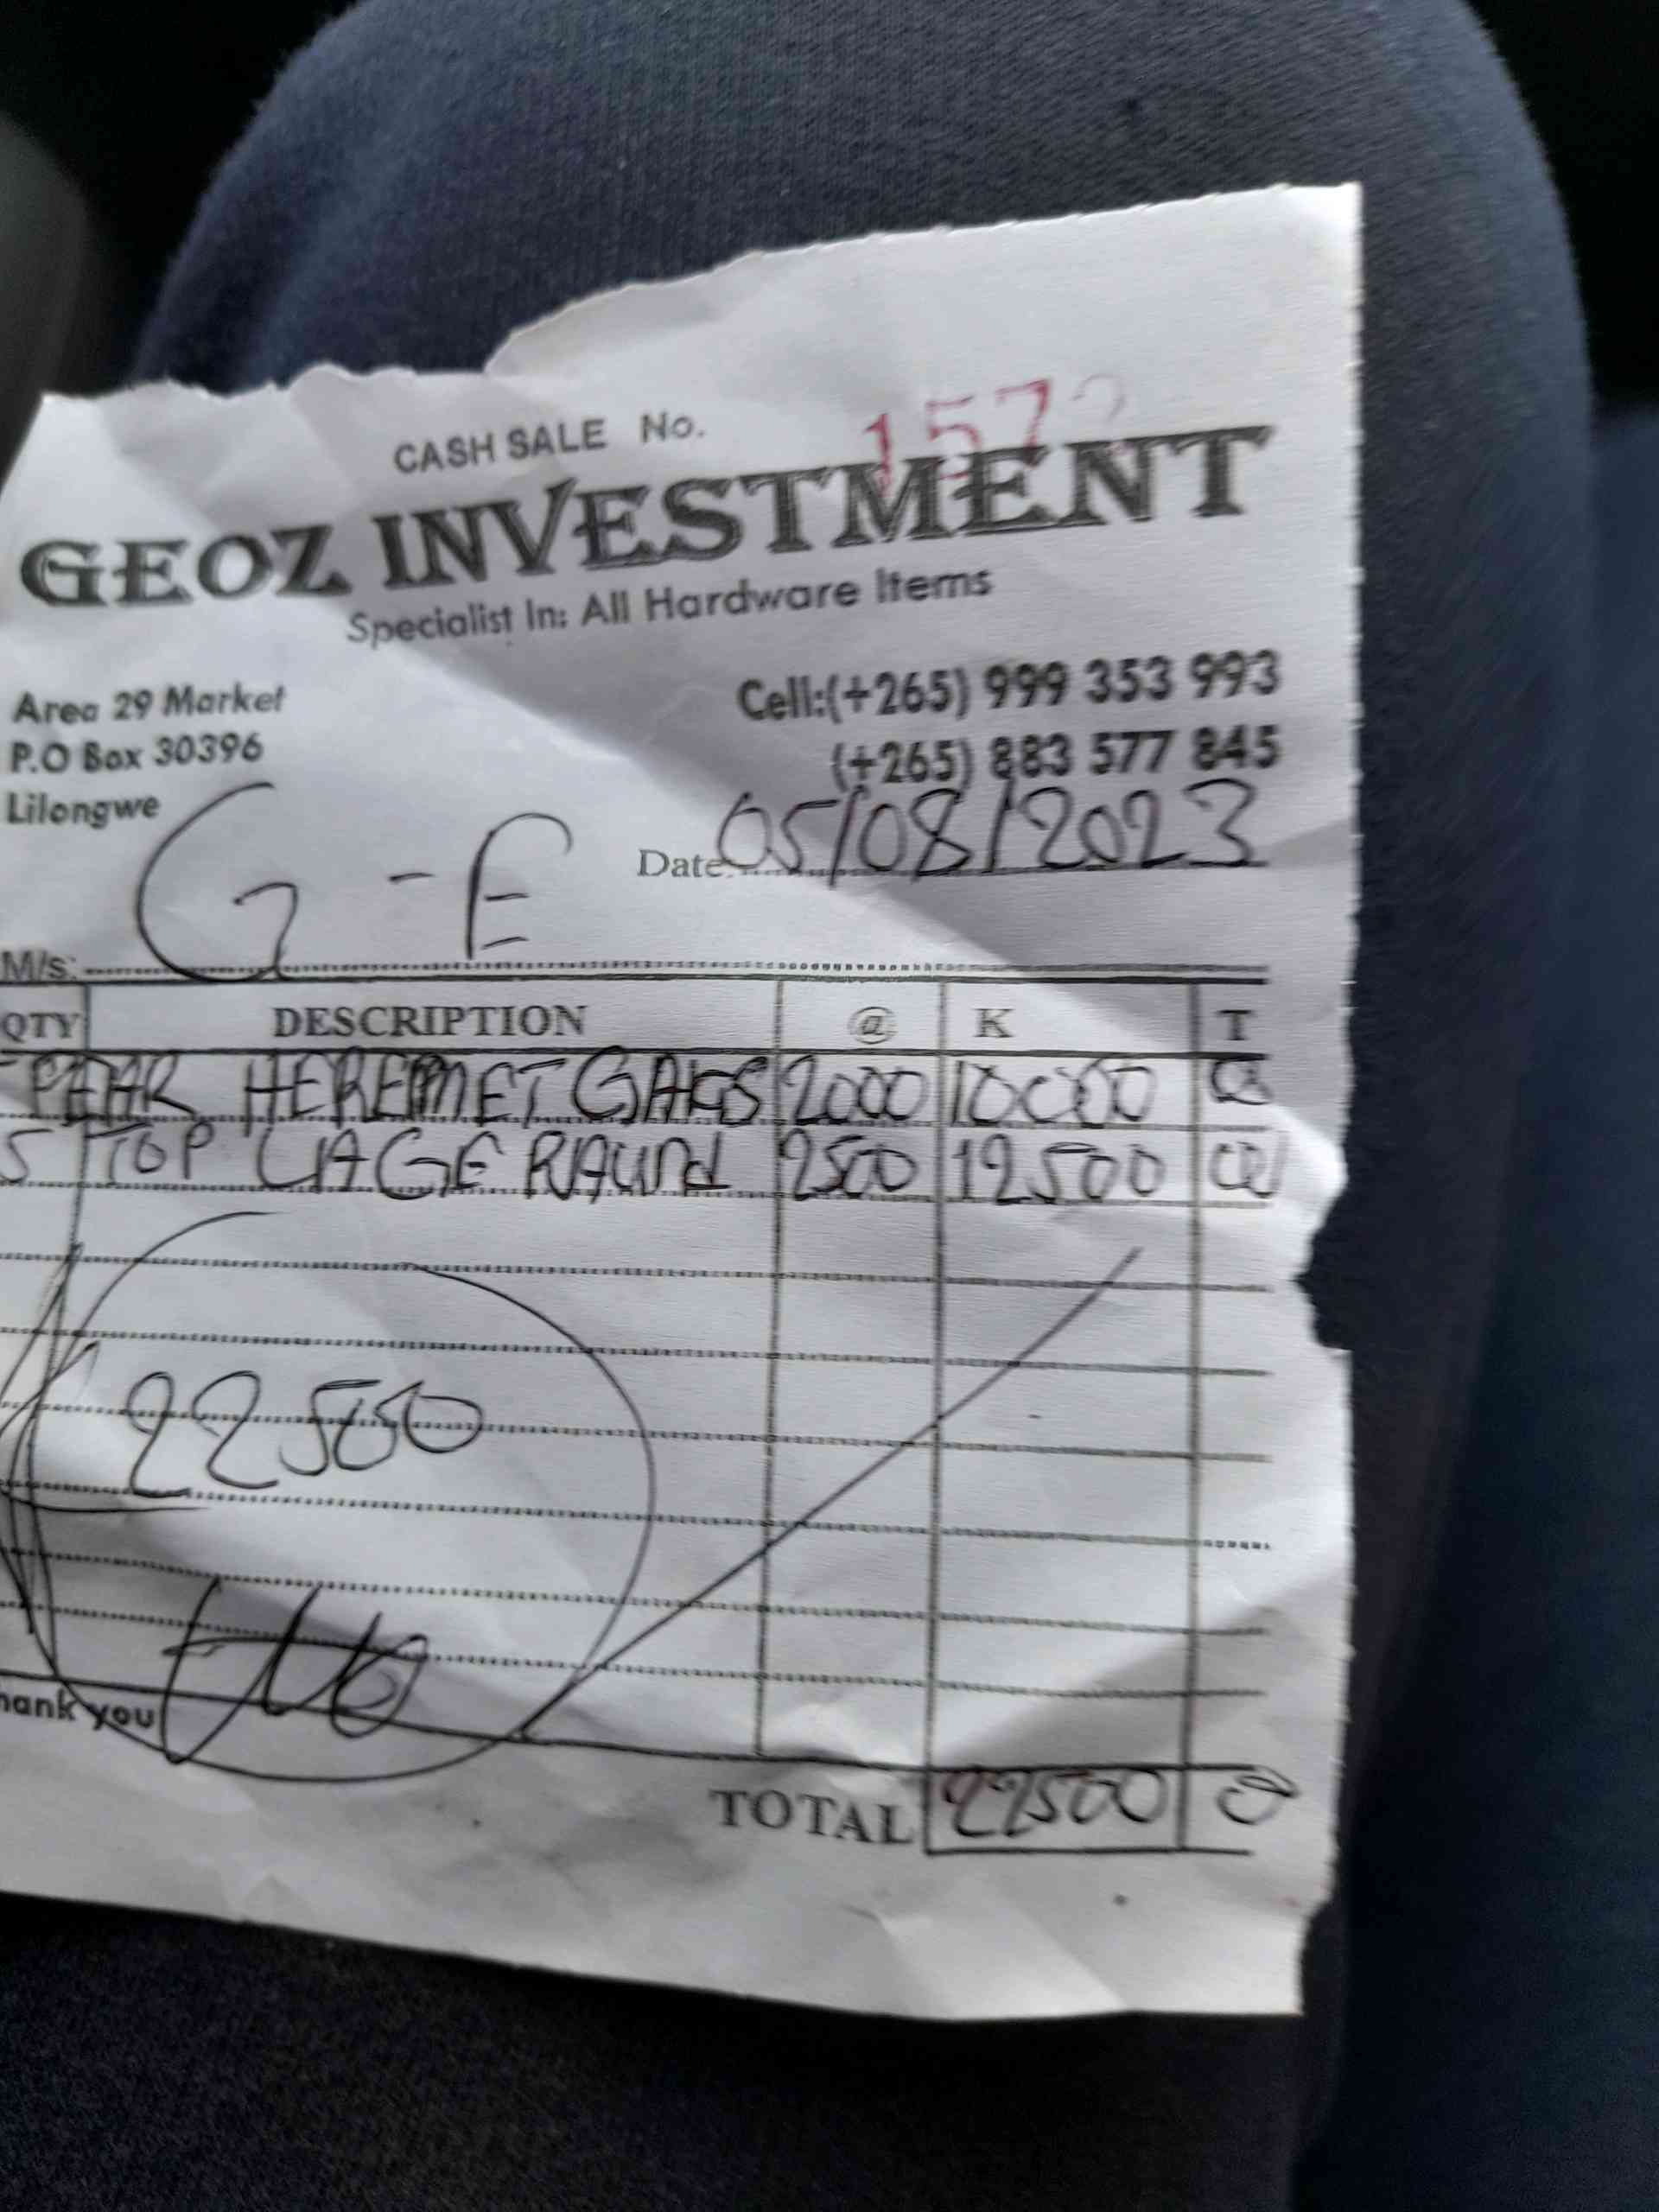 CASH SALE No. 157
GEOZ INVESTMENT
Specialist In: All Hardware Items
Area 29 Market
P.O Box 30396
Lilongwe
Cell:(+265) 999 353 993
(+265) 883 577 845
Date: 05/08/2023
M/s: G-E
QTY DESCRIPTION @ K T
PEAR 2000 10000
5 TOP LAGE RAUND 2500 12500
22500
hank you
TOTAL 22500